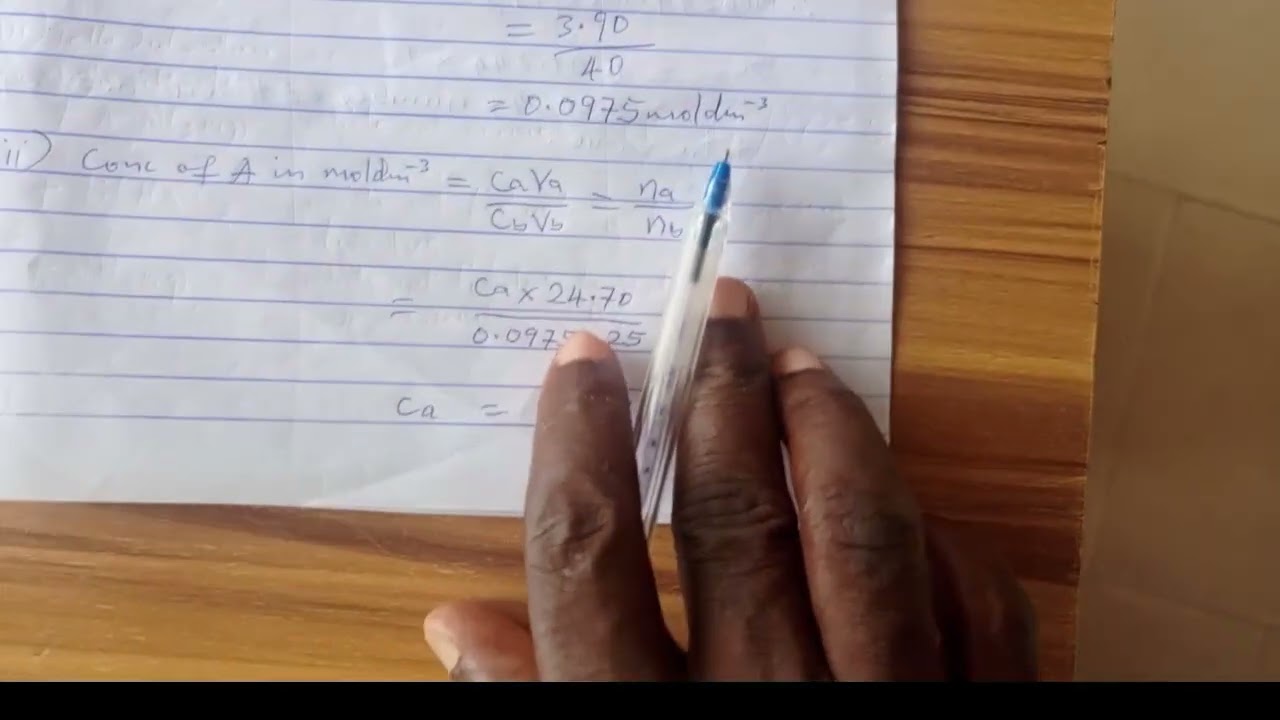 = 3.90
40
= 0.0975 moldm⁻³
ii) Conc of A in moldm⁻³ = CaVa = na
CbVb nb
= Ca x 24.70
0.097 25
Ca =